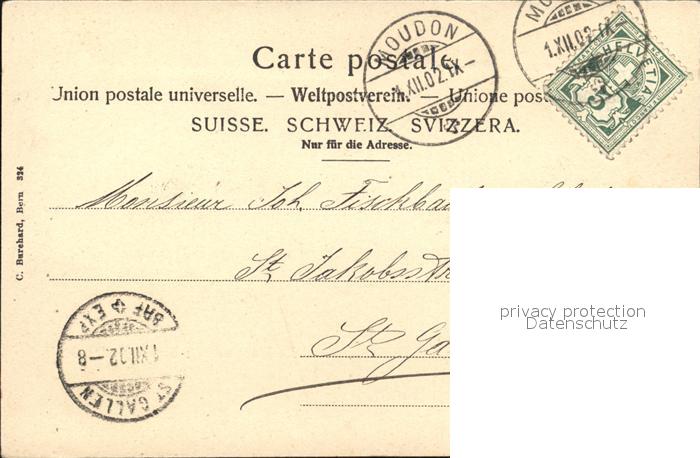 Carte postale.
Union postale universelle. — Weltpostverein. — Unione post
SUISSE. SCHWEIZ. SVIZZERA.
Nur für die Adresse.
MOUDON
1.XII.02.IX–
MOU
1.XII.02.IX
HELVETIA
5
C. Burchard, Bern 324
Monsieur Joh. Fischbac
St. Jakobsstr
St. Ga
privacy protection
Datenschutz
ST. GALLEN
1.XII.02.–8
BRF. EXP.